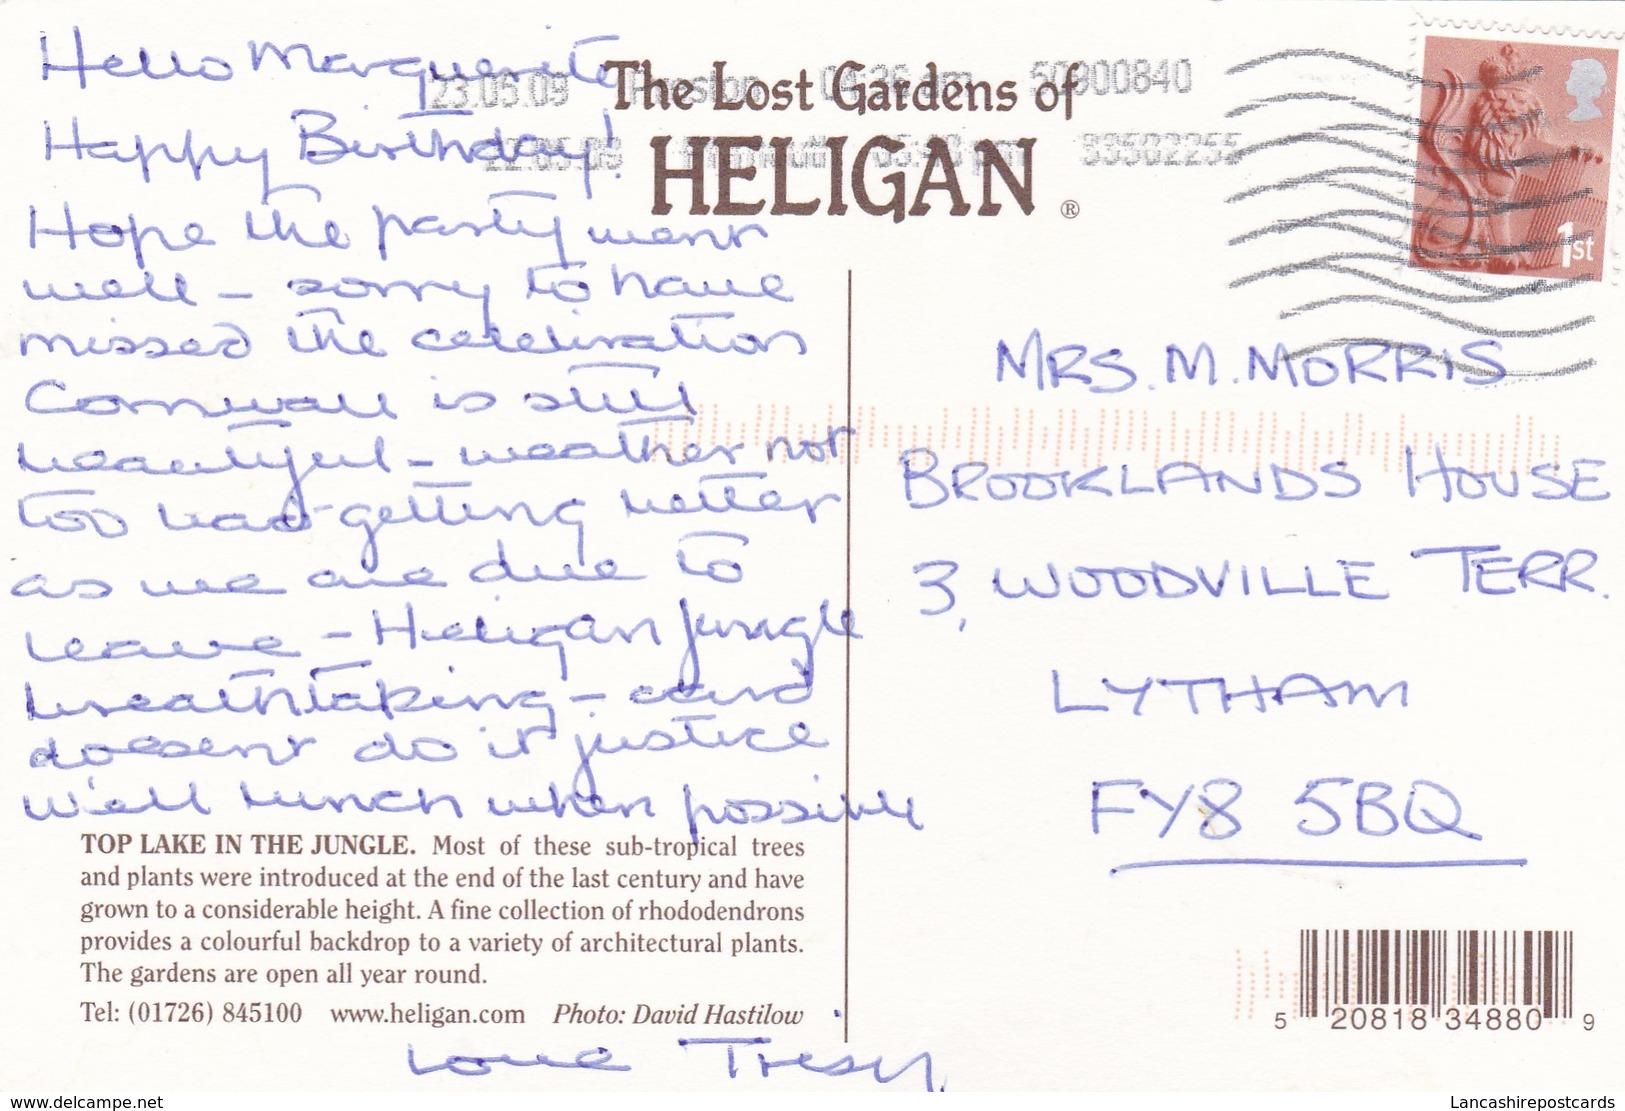 Hello Marguerite
Happy Birthday!
Hope the party went
well – sorry to have
missed the celebration
Cornwall is still
beautiful – weather not
too bad – getting better
as we are due to
leave – Heligan jungle
breathtaking – card
doesent do it justice
We'll lunch when possible
Love
The Lost Gardens of
HELIGAN ®
23.05.09 Preston 04:36 am 50900840
33502255
1st
MRS. M. MORRIS
BROOKLANDS HOUSE
3, WOODVILLE TERR.
LYTHAM
FY8 5BQ
TOP LAKE IN THE JUNGLE. Most of these sub-tropical trees
and plants were introduced at the end of the last century and have
grown to a considerable height. A fine collection of rhododendrons
provides a colourful backdrop to a variety of architectural plants.
The gardens are open all year round.
Tel: (01726) 845100 www.heligan.com Photo: David Hastilow
5 20818 34880 9
www.delcampe.net
Lancashirepostcards